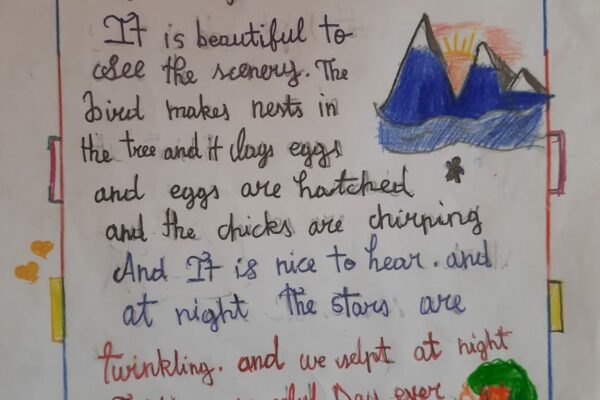 It is beautiful to
see the scenery. The
bird makes nests in
the tree and it lays eggs
and eggs are hatched
and the chicks are chirping
And It is nice to hear. and
at night the stars are
twinkling. and we slept at night
Day ever